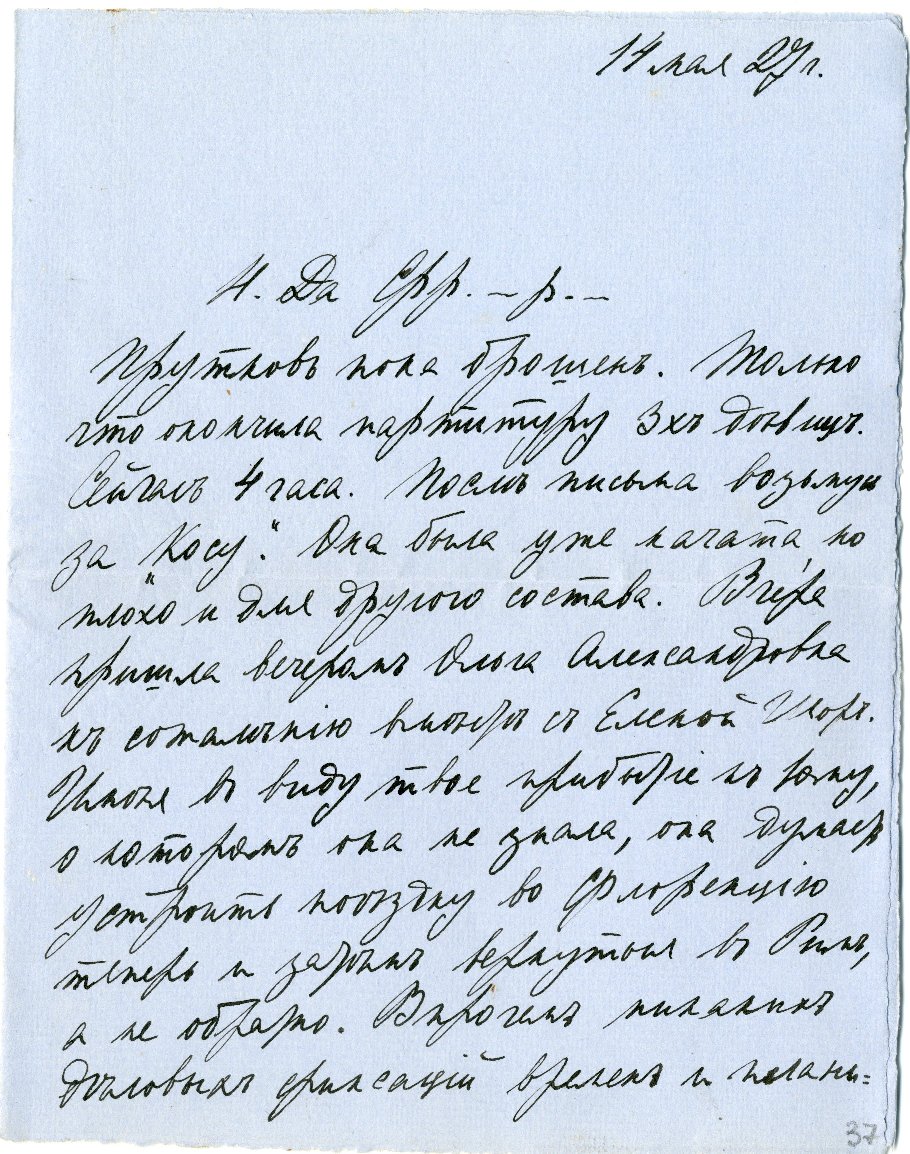 14 мая 27 г.
Н. Да Фрр. – р. –
Прутковъ пока брошенъ. Только
что окончила партитуру 3хъ дѣвицъ.
Сейчасъ 4 часа. Послѣ письма возьмусь
за „Косу“. Она была уже начата, но
плохо и для другого состава. Вчера
пришла вечеромъ Ольга Александровна
къ сожалѣнію вмѣстѣ съ Еленой
Имѣя въ виду твое прибытіе къ
о которомъ она не знала, она думаетъ
устроить поѣздку во Флоренцію
теперь и затѣмъ вернуться въ Римъ,
а не обратно. Впрочемъ никакихъ
дѣловыхъ фиксацій временъ и
37